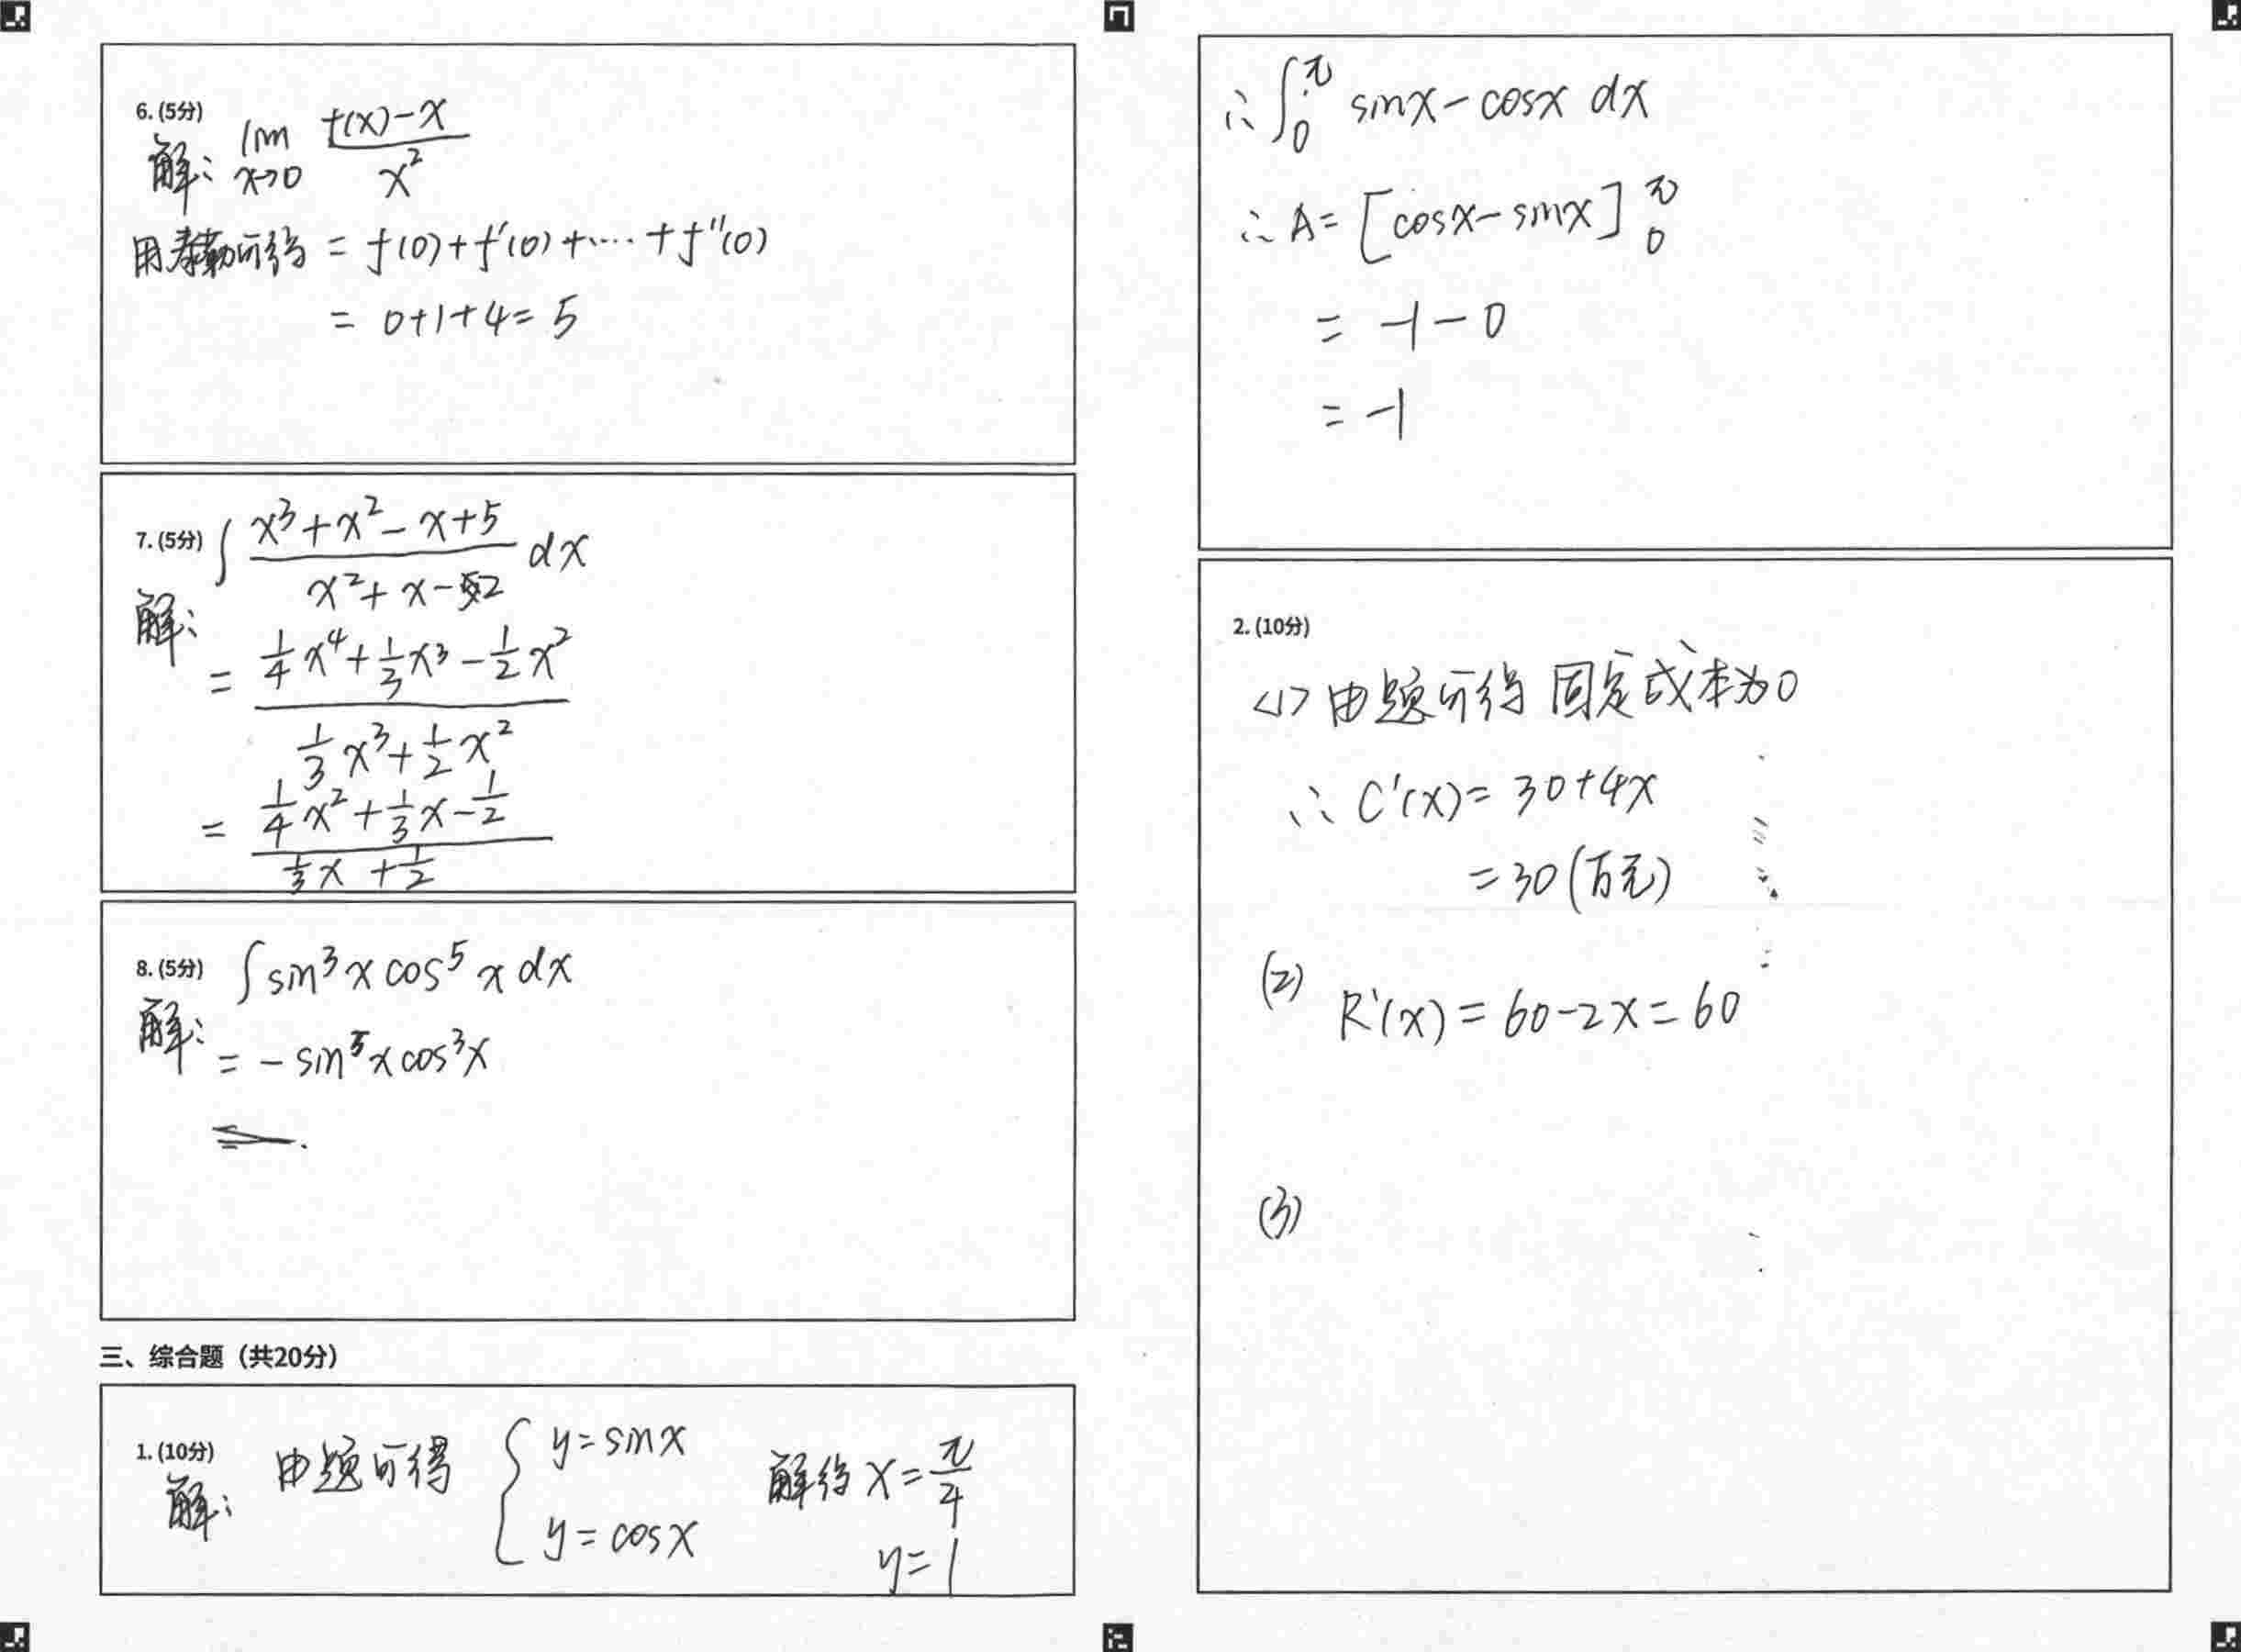 6. (5分)
解: lim x→0 (f(x)-x)/x²
用泰勒可得 = f(0)+f'(0)+……+f''(0)
= 0+1+4=5
7. (5分) ∫ (x³+x²-x+5)/(x²+x-2) dx
解:
= (1/4 x⁴+1/3 x³-1/2 x²)/(1/3 x³+1/2 x²)
= (1/4 x²+1/3 x-1/2)/(1/3 x+1/2)
8. (5分) ∫sin³x cos⁵x dx
解: = -sin⁵x cos³x
=
三、综合题（共20分）
1. (10分)
解: 由题可得 { y=sinx y=cosx 解得 x=π/4
y=1
∴ ∫₀^π sinx-cosx dx
∴ A= [cosx-sinx]₀^π
= -1-0
= -1
2. (10分)
<1> 由题可得 固定成本为0
∴ C'(x)= 30+4x
=30(百元)
(2) R'(x)= 60-2x=60
(3)